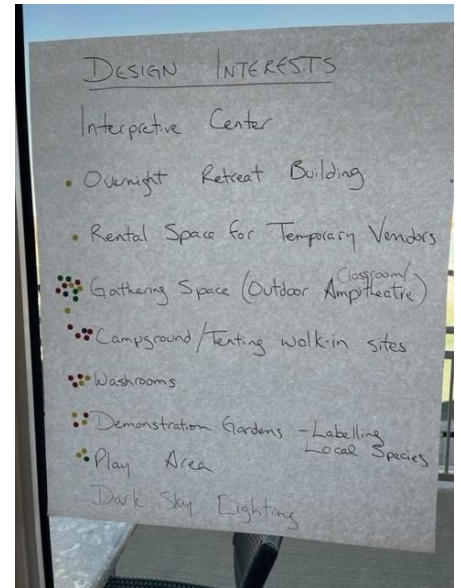 DESIGN INTERESTS
Interpretive Center
Overnight Retreat Building
Rental Space for Temporary Vendors
Gathering Space (Outdoor Classroom/ Ampitheatre)
Campground/Tenting walk-in sites
Washrooms
Demonstration Gardens - Labelling
Local Species
Play Area
Dark Sky Lighting